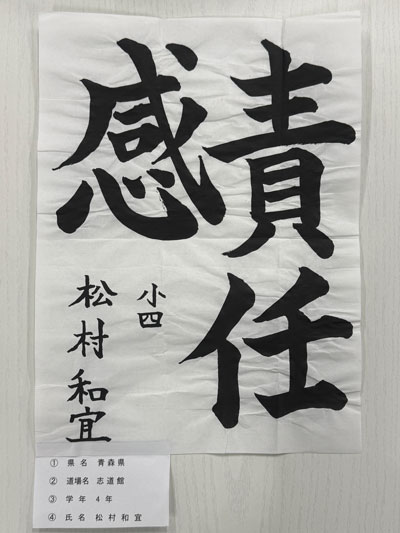 責任
感
小四
松村和宜
① 県名 青森県
② 道場名 志道館
③ 学年 4年
④ 氏名 松村和宜